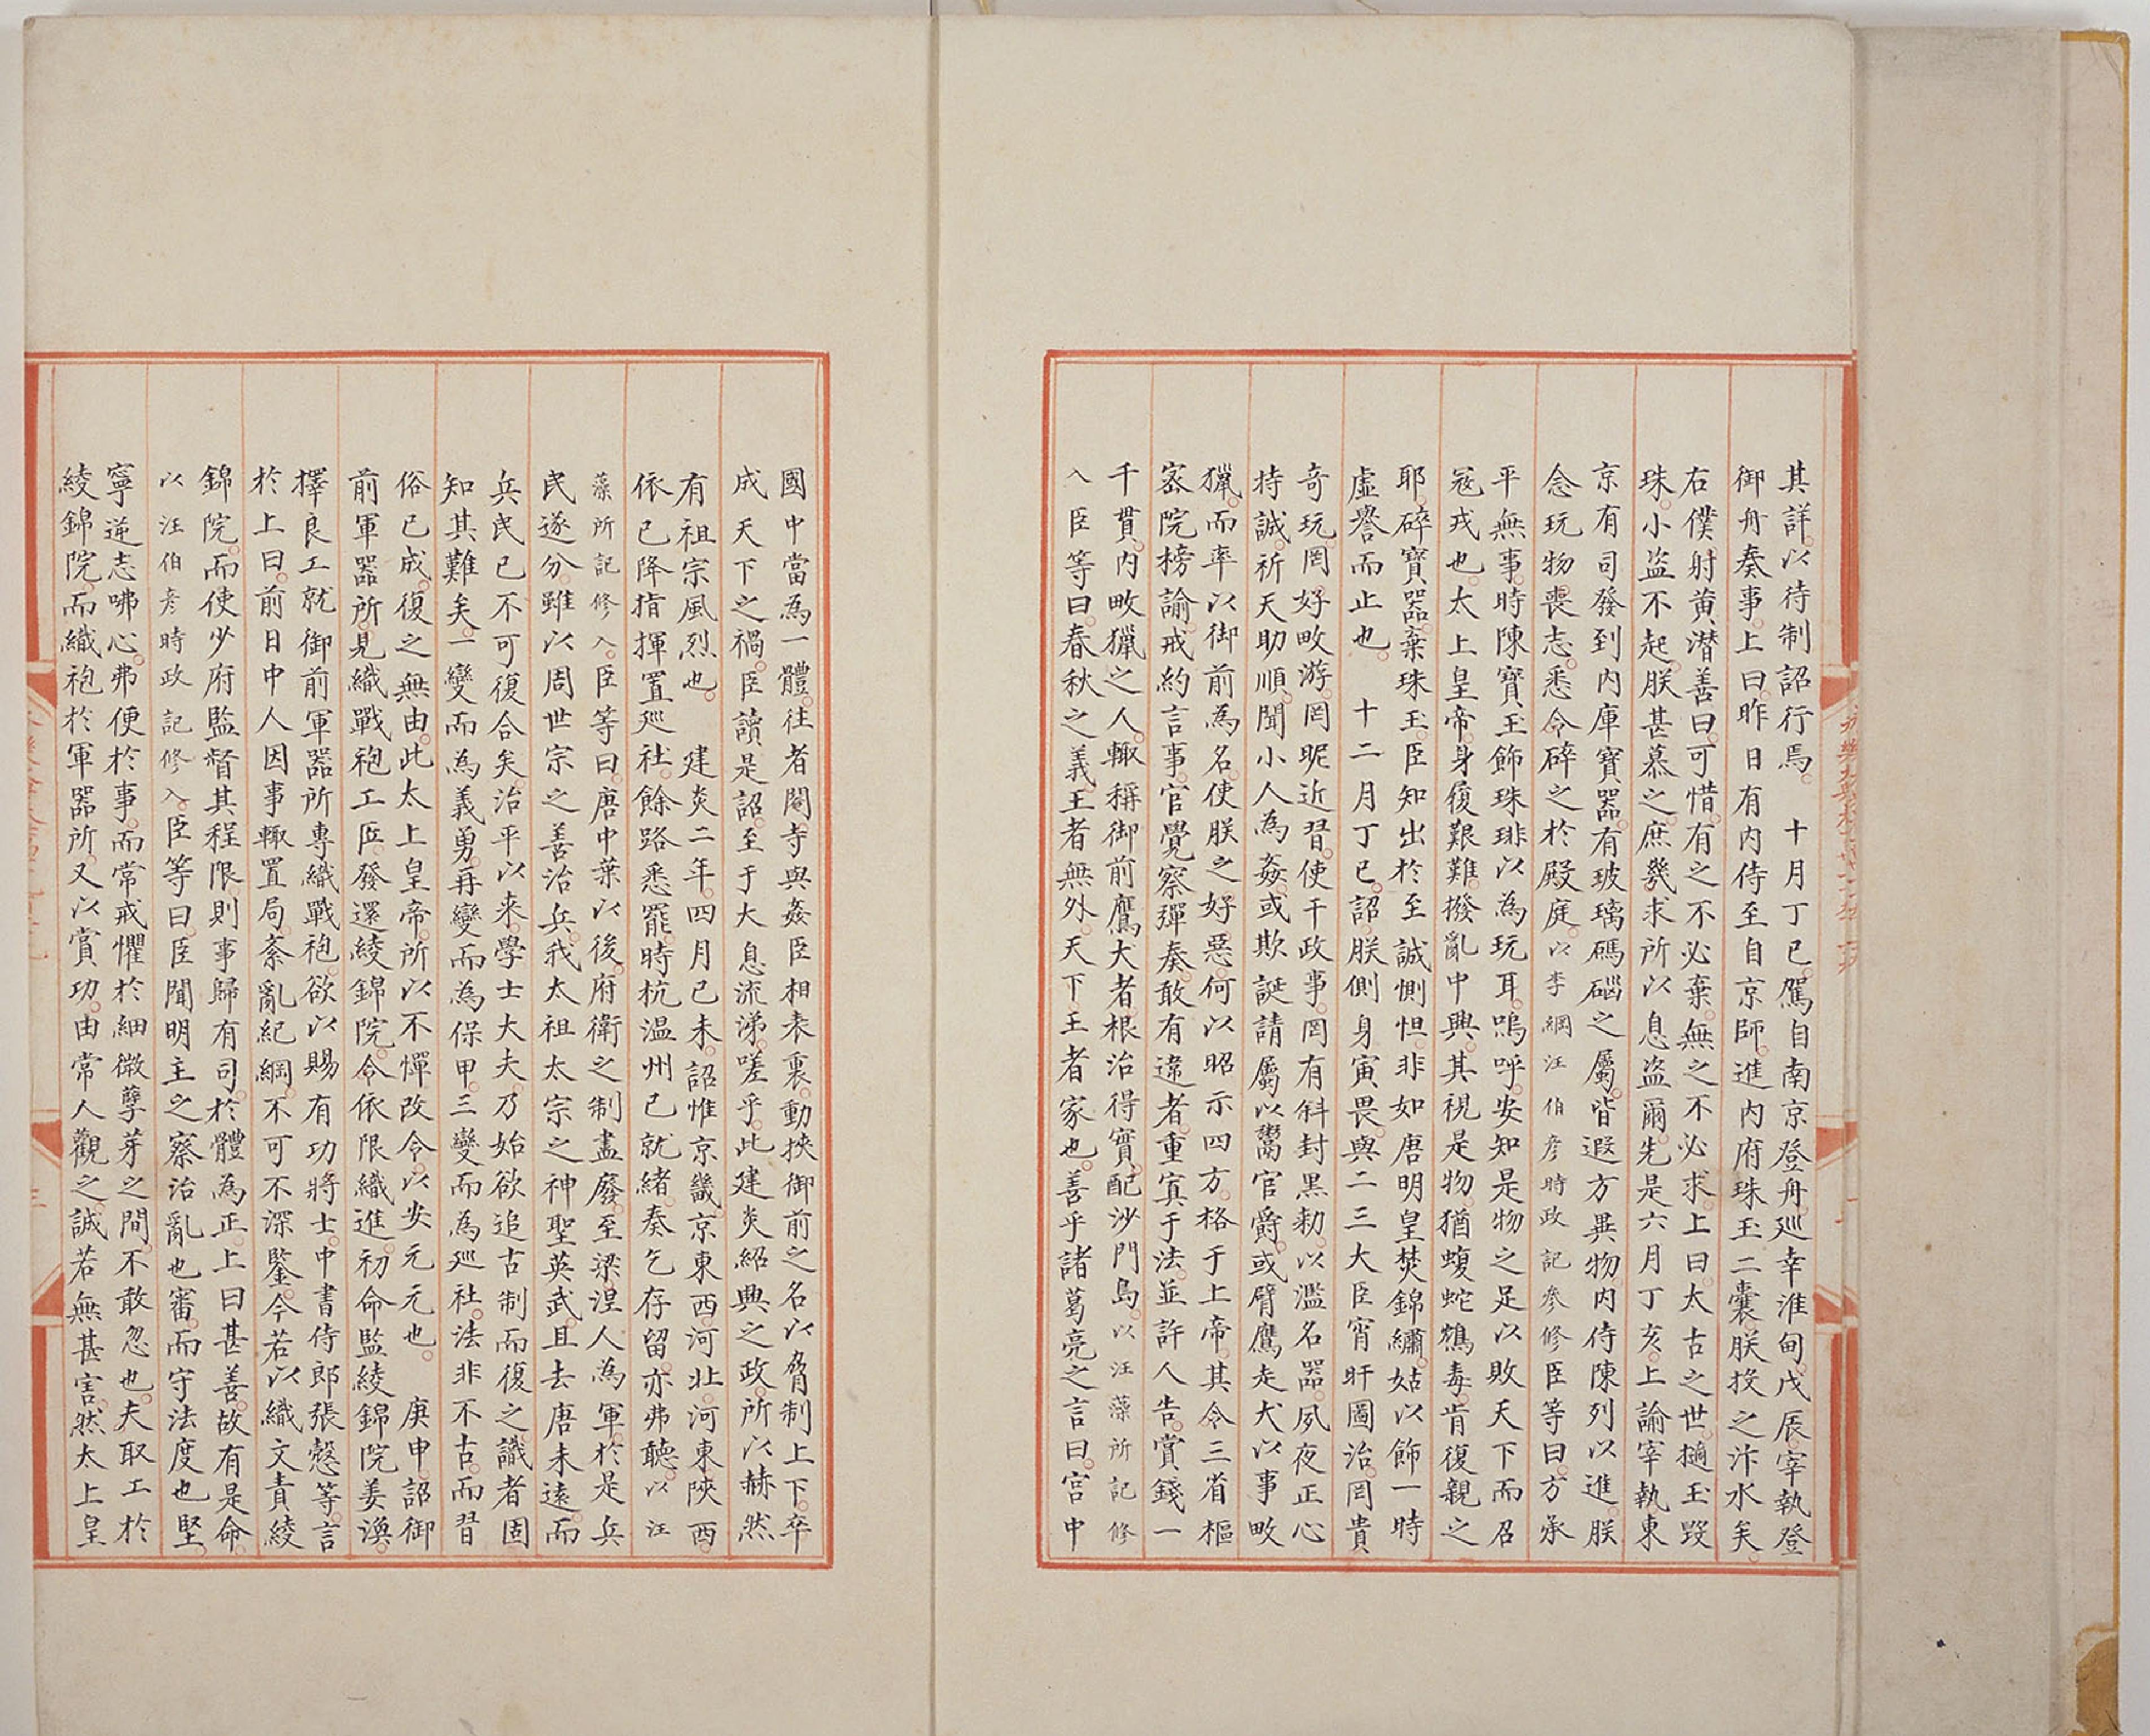 其詳以待制詔行焉。十月丁巳。駕自南京登舟巡幸淮甸。戊辰。宰執登
御舟奏事。上曰。昨日有內侍至自京師。進內府珠玉二囊。朕投之汴水矣。
右僕射黃潛善曰。可惜。有之不必棄。無之不必求。上曰。太古之世。擿玉毀
珠。小盜不起。朕甚慕之。庶幾求所以息盜爾。先是六月丁亥。上諭宰執。東
京有司發到內庫寶器。有玻瓈碼碯之屬。皆遐方異物。內侍陳列以進。朕
念玩物喪志。悉令碎之於殿庭。以李綱汪伯彥時政記參修臣等曰。方承
平無事。時陳寶玉飾珠琲以為玩耳。嗚呼。安知是物之足以敗天下而召
寇戎也。太上皇帝身履艱難。撥亂中興。其視是物。猶蝮蛇鴆毒。肯復親之
耶。碎寶器。棄珠玉。臣知出於至誠惻怛。非如唐明皇焚錦繡。姑以飾一時
虛譽而止也。十二月丁巳。詔。朕側身寅畏。與二三大臣宵旰圖治。罔貴
奇玩。罔好畋游。罔昵近習。使干政事。罔有斜封黑勅。以濫名器。夙夜正心
持誠。祈天助順。聞小人為姦。或欺誕請屬。以鬻官爵。或臂鷹走犬以事畋
獵。而率以御前為名。使朕之好惡。何以昭示四方。格于上帝。其令三省樞
密院榜諭。戒約言事。官覺察彈奏。敢有違者。重寘于法。並許人告。賞錢一
千貫。內畋獵之人。輙稱御前鷹犬者。根治得實。配沙門島。以汪藻所記修
入臣等曰。春秋之義。王者無外。天下王者家也。善乎諸葛亮之言曰。宮中
國中當為一體。往者閹寺與姦臣相表裏。動挾御前之名以脅制上下。卒
成天下之禍。臣讀是詔。至于大息流涕。嗟乎。此建炎紹興之政。所以赫然
有祖宗風烈也。建炎二年。四月己未。詔惟京畿。京東西。河北。河東。陝西。
依已降指揮置巡社。餘路悉罷。時杭溫州已就緒。奏乞存留。亦弗聽。以汪
藻所記修入。臣等曰。唐中葉以後。府衛之制盡廢。至梁涅人為軍。於是兵
民遂分。雖以周世宗之善治兵。我太祖太宗之神聖英武。且去唐未遠。而
兵民已不可復合矣。治平以來。學士大夫。乃始欲追古制而復之。識者固
知其難矣。一變而為義勇。再變而為保甲。三變而為巡社。法非不古。而習
俗已成。復之無由。此太上皇帝。所以不憚改令。以安元元也。庚申。詔御
前軍器所。見織戰袍工匠。發還綾錦院。令依限織進。初命監綾錦院姜渙。
擇良工就御前軍器所專織戰袍。欲以賜有功將士。中書侍郎張愨等言
於上曰。前日中人因事輙置局。紊亂紀綱。不可不深鑒。今若以織文責綾
錦院。而使少府監督其程限。則事歸有司。於體為正。上曰甚善。故有是命。
以汪伯彥時政記修入。臣等曰。臣聞明主之察治亂也審。而守法度也堅。
寧逆志咈心。弗便於事。而常戒懼於細微孽芽之間。不敢忽也。夫取工於
綾錦院。而織袍於軍器所。又以賞功。由常人觀之。誠若無甚害。然太上皇